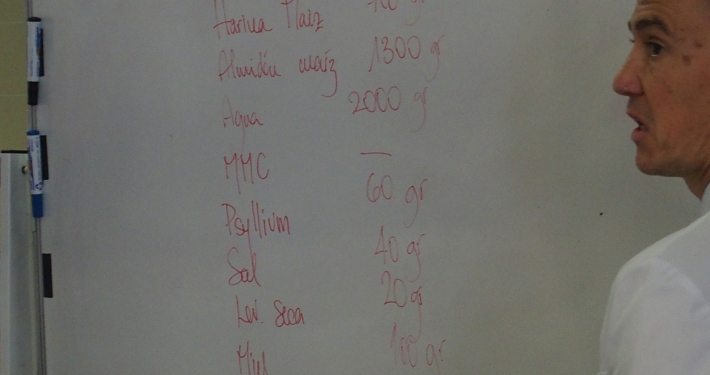 Harina Maiz gr
Almidón maíz 1300 gr
Agua 2000 gr
MMC —
Psyllium 60 gr
Sal 40 gr
Lev. Seca 20 gr
Miel 100 gr